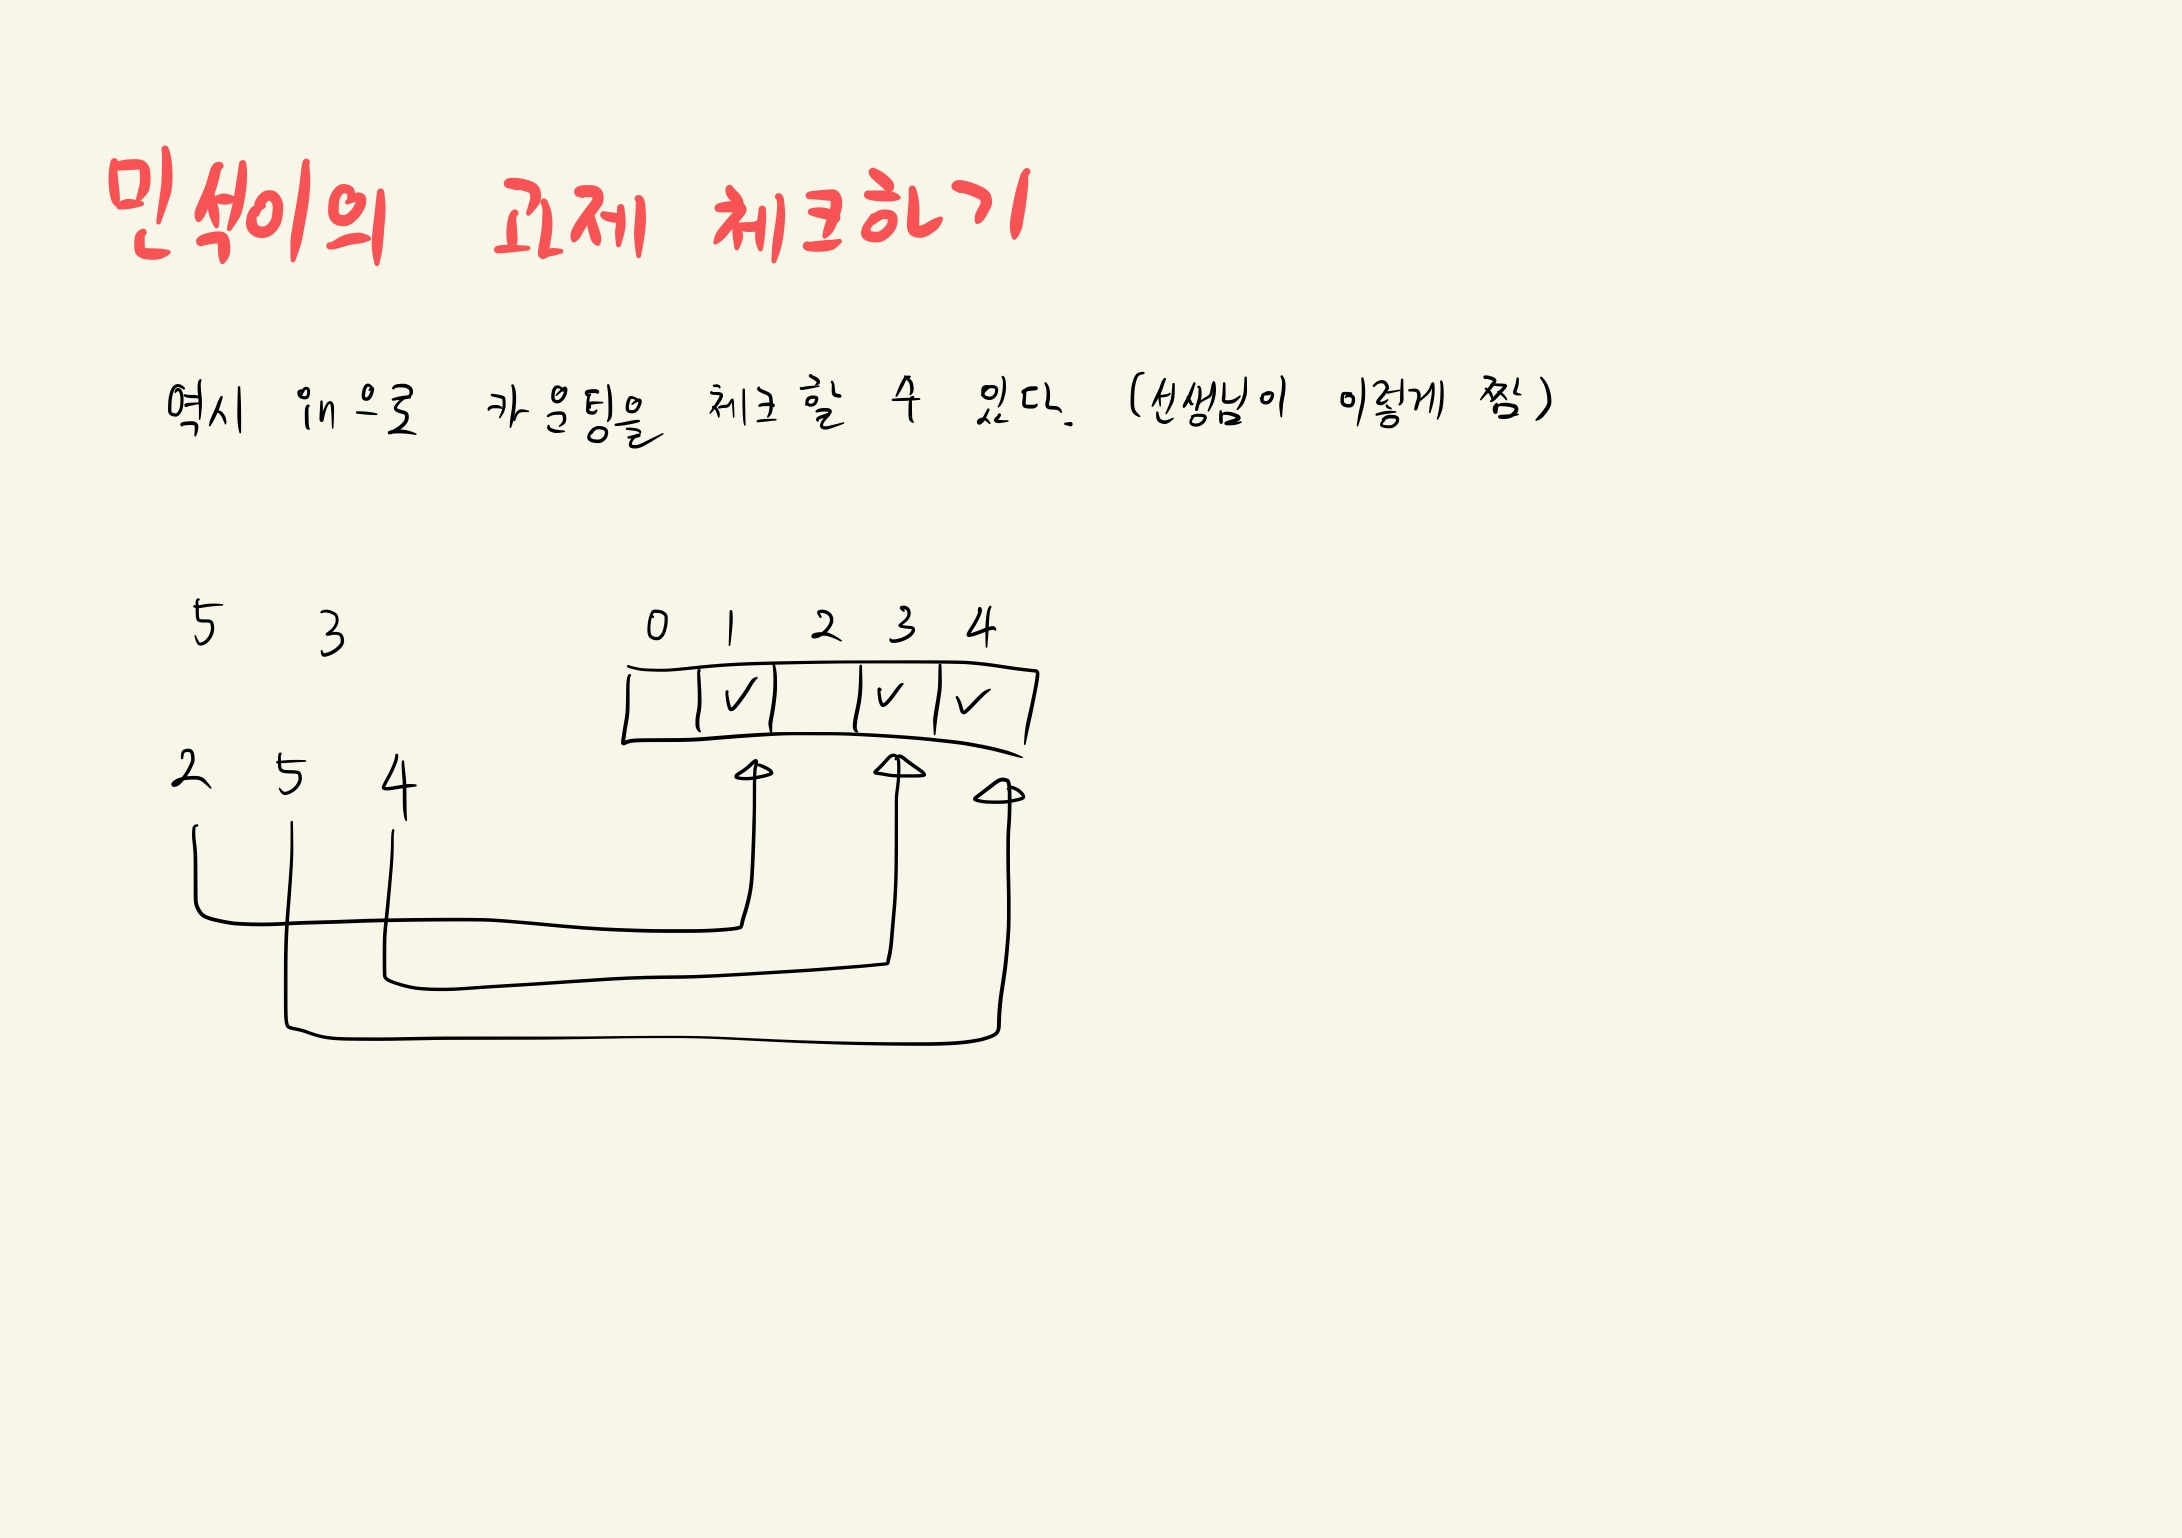 민석이의 과제 체크하기
역시 in으로 카운팅을 체크할 수 있다. (선생님이 이렇게 짬)
5 3
0 1 2 3 4
2 5 4